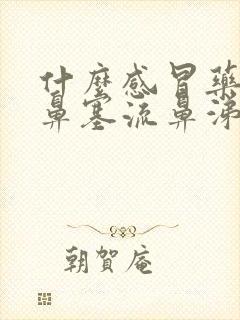 什麼感冒藥
鼻塞流鼻涕
朝賀庵